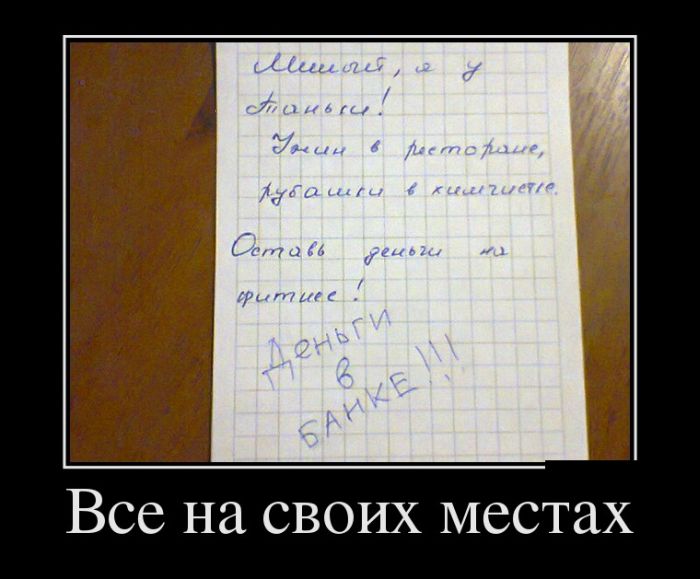 Милый, я у
Таньки!
Ужин в ресторане,
рубашки в химчистке.
Оставь деньги на
фитнес!
Деньги
в
БАНКЕ!!!
Все на своих местах